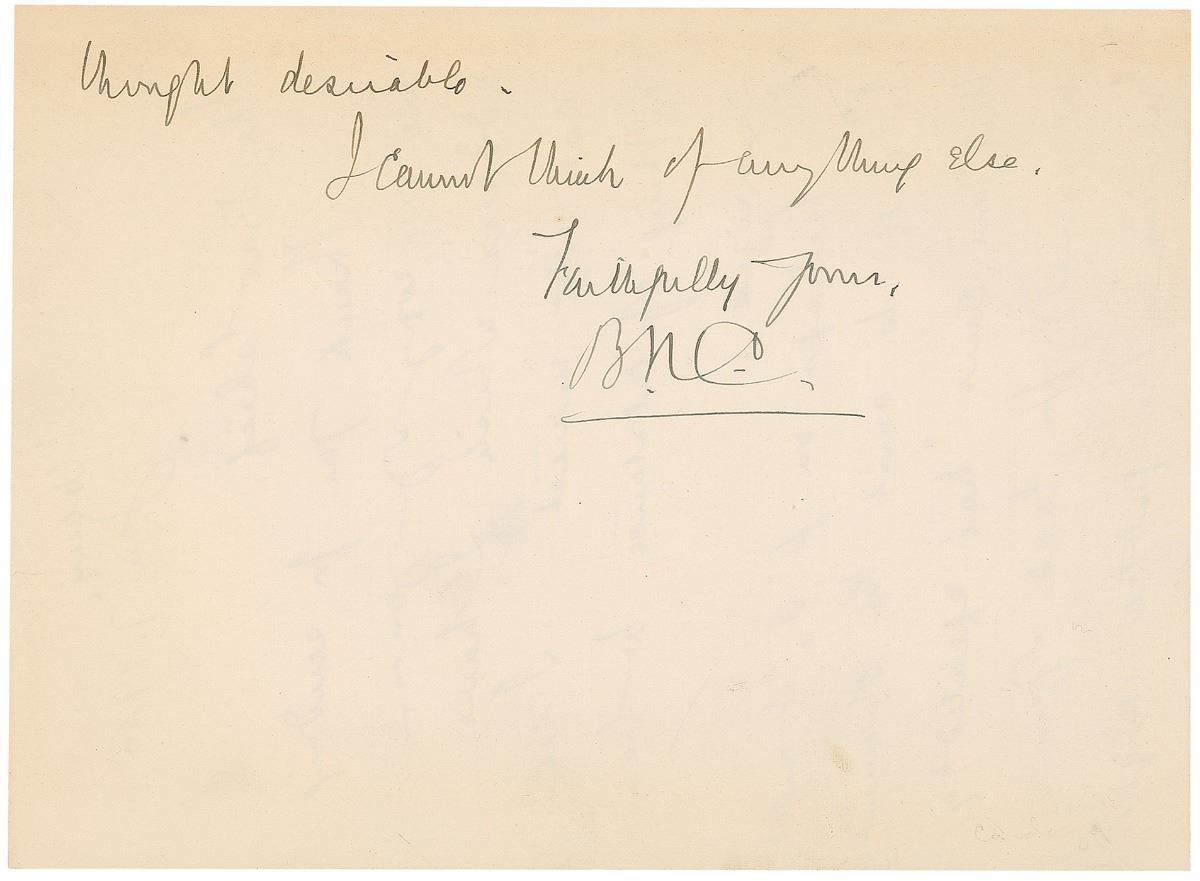 thought desirable.
I cannot think of anything else.
Faithfully yours,
B.N.C.